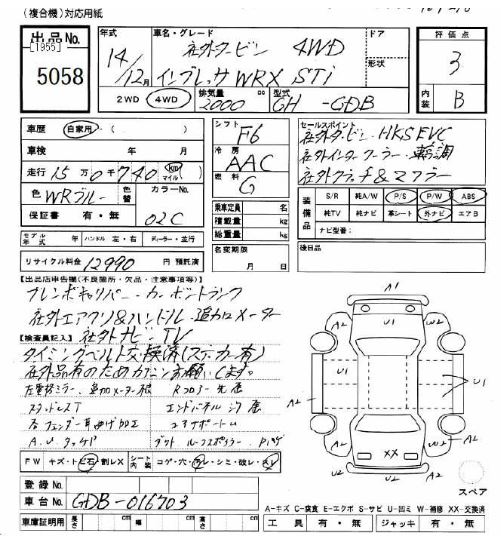 (複合機)対応用紙
出品No. [1955] 5058
年式 14/12月
車名・グレード 社外タービン 4WD
インプレッサ WRX STi
ドア 形状
評価点 3
内装 B
2WD 4WD 排気量 2000 cc 型式 GH-GDB
車歴 自家用・( )
車検 年 月
走行 15万0千740 km マイル
色 WRブルー 色替 カラーNo. 02C
保証書 有・無
モデル年式 年 ハンドル 左・右 ディーラー・並行
リサイクル料金 12990 円 預託済
シフト F6
冷房 AAC
燃料 G
乗車定員 名
積載量 kg
総重量 kg
名変期限 月 日
セールスポイント
社外タービン HKS EVC
社外インタークーラー 車高調
社外クラッチ&マフラー
装備品 S/R 純A/W P/S P/W ABS
純TV 純ナビ 革シート 外ナビ エアB
ナビ型番:
諸日目
【出品店申告欄(不良箇所・欠品・注意事項等)】
ブレンボキャリパー カーボントランク
社外エアクリ&ハンドル 追加メーター
【検査員記入】社外ナビ TV
タイミングベルト交換済(ステッカー有)
社外品有のためカクニンお願いします。
スタッドレスT
A.U.タッチP ダット ルーフスポイラー
FW キズ・ヒビ石・割レX シート内装 コゲ・穴・スレ・シミ・破レ・
登録No.
車台No. GDB-016703
車庫証明用 長さ cm 幅 cm 高さ cm
A2 U1 A2
A1 U1 U1 U1 A1
A2 XX A2
A2
スペア
A-キズ C-腐食 E-エクボ S-サビ U-凹ミ W-補修 XX-交換済
工具 有・無 ジャッキ 有・無